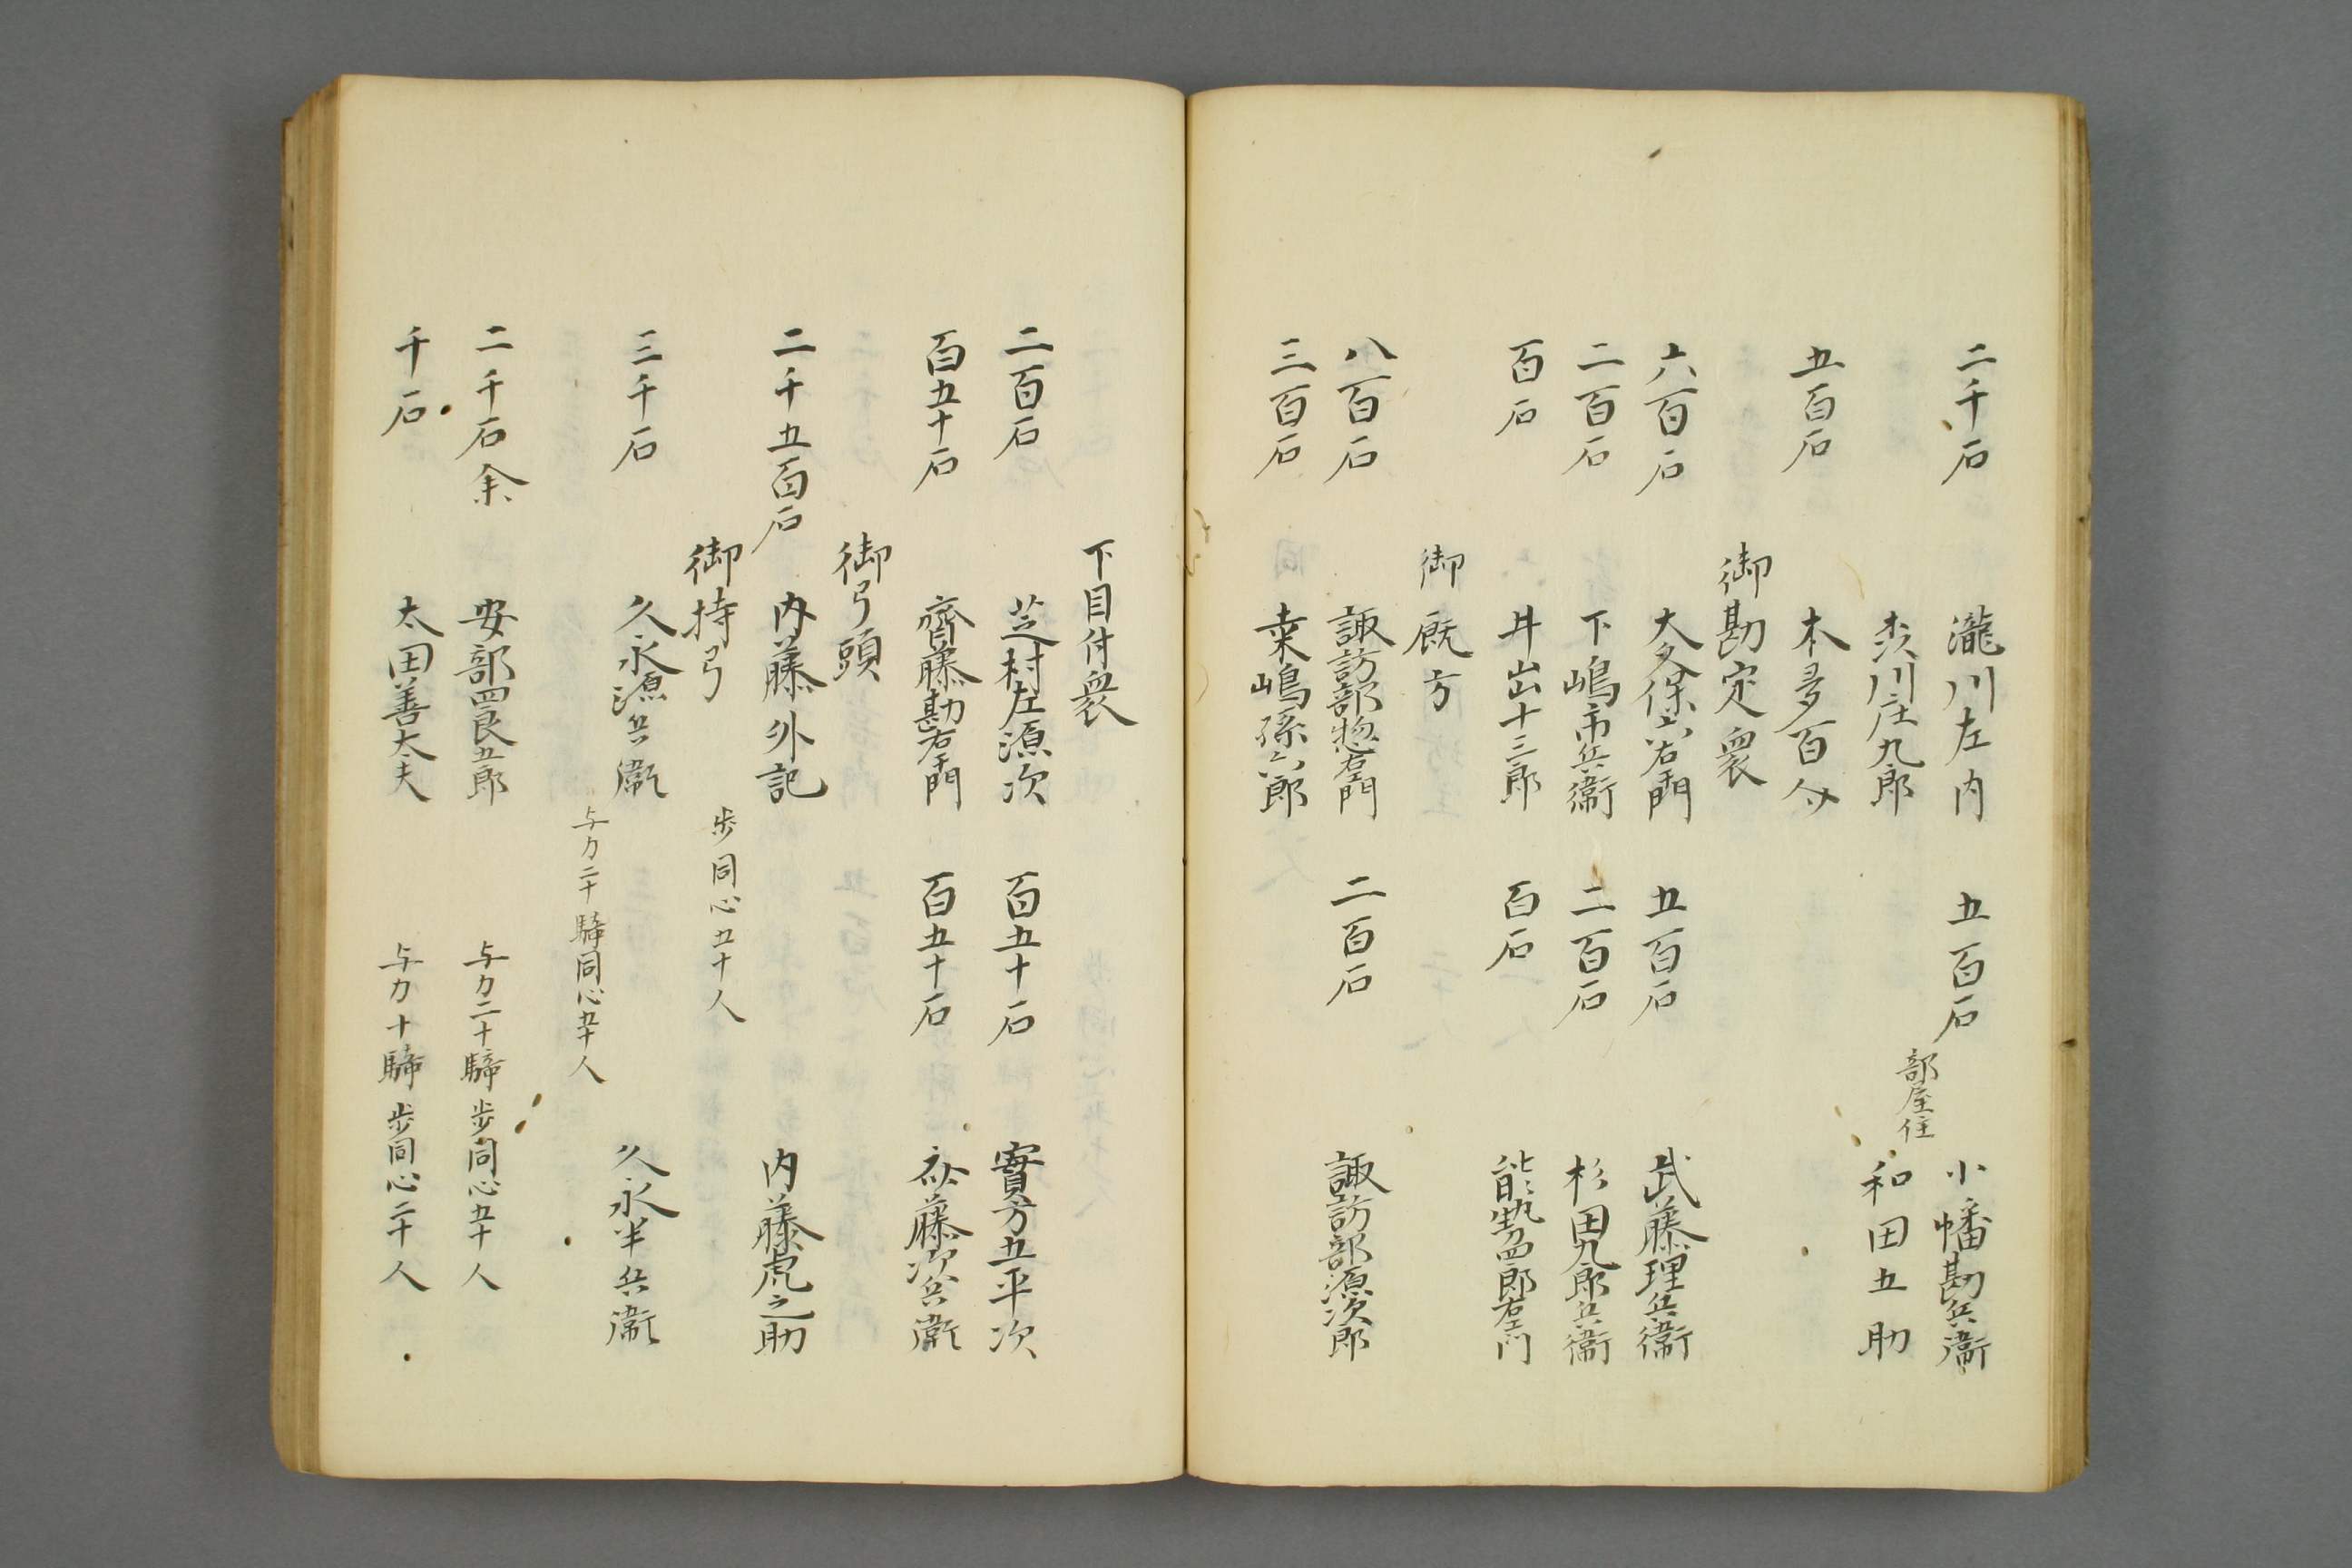 二千石 瀧川左内 五百石 小幡勘兵衛
渋川庄九郎 部屋住 和田五助
五百石 本多百介
御勘定衆
六百石 大久保六右衛門 五百石 武藤理兵衛
二百石 下嶋市兵衛 二百石 杉田九郎兵衛
百石 井出十三郎 百石 能勢四郎右衛門
御厩方
八百石 諏訪部惣右衛門 二百石 諏訪部源次郎
三百石 桒嶋孫六郎
下目付衆
二百石 芝村左源次 百五十石 實方五平次
百五十石 齋藤勘右衛門 百五十石 藤次兵衛
御弓頭
二千五百石 内藤外記 内藤虎之助
歩同心五十人
御持弓
三千石 久永源兵衛 久永半兵衛
与力二十騎同心五十人
二千石余 安部四良五郎 与力二十騎歩同心五十人
千石 太田善太夫 与力十騎歩同心二十人